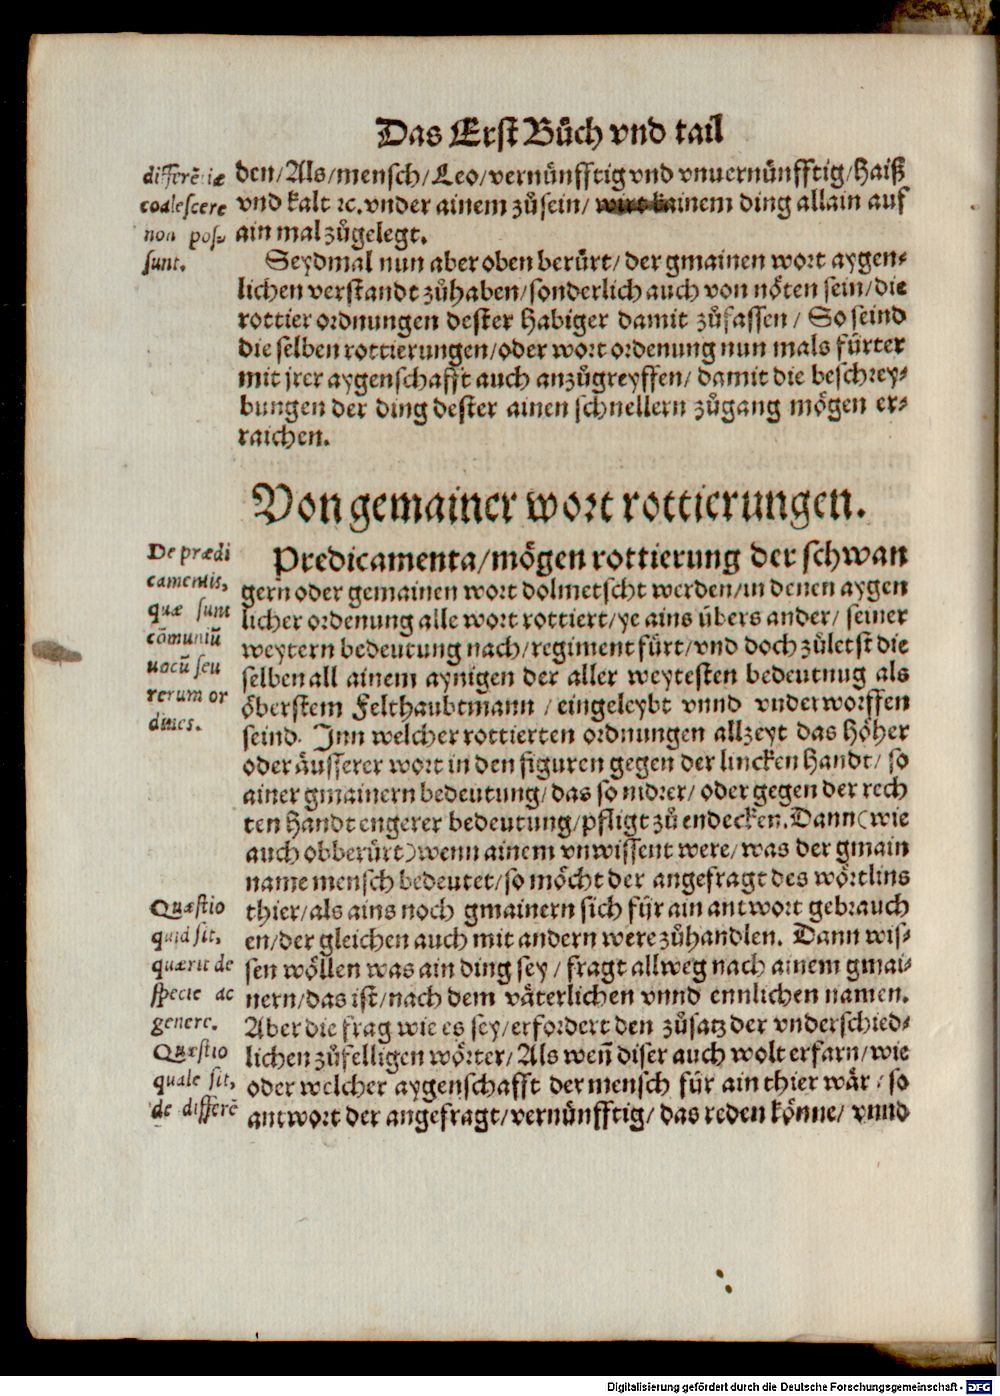 Das Erst Bůch vnd tail
differē⁊iæ
coalescere
non pos⸗
sunt.
den/Als/mensch/Leo/vernünfftig vnd vnuernünfftig/Haiß
vnd kalt ⁊c. vnder ainem zůsein/ wirt kainem ding allain auf
ain mal zůgelegt.
Seydmal nun aber oben berürt/ der gmainen wort aygen⸗
lichen verstandt zůhaben/sonderlich auch von nöten sein/die
rottier ordnungen dester habiger damit zůfassen/ So seind
die selben rottierungen/oder wort ordenung nun mals fürter
mit jrer aygenschafft auch anzůgreyffen/ damit die beschrey⸗
bungen der ding dester ainen schnellern zůgang mögen er⸗
raichen.
Von gemainer wort rottierungen.
De prædi
camentis,
quæ sunt
cōmuniū
uocū seu
rerum or
dines.
Predicamenta/mögen rottierung der schwan
gern oder gemainen wort dolmetscht werden/in denen aygen
licher ordenung alle wort rottiert/ye ains übers ander/ seiner
weytern bedeutung nach/regiment fürt/vnd doch zůletst die
selben all ainem aynigen der aller weytesten bedeutnug als
öberstem Felthaubtmann / eingeleybt vnnd vnderworffen
seind. Inn welcher rottierten ordnungen allzeyt das höher
oder äusserer wort in den figuren gegen der lincken handt/ so
ainer gmainern bedeutung/das so nidrer/ oder gegen der rech
ten handt engerer bedeutung/pfligt zů endecken. Dann (wie
auch obberürt) wenn ainem vnwissent were/was der gmain
name mensch bedeutet/so möcht der angefragt des wörtlins
thier/als ains noch gmainern sich für ain antwort gebrauch
en/der gleichen auch mit andern were zůhandlen. Dann wis⸗
sen wöllen was ain ding sey / fragt allweg nach ainem gmai⸗
nern/das ist/nach dem väterlichen vnnd ennlichen namen.
Aber die frag wie es sey/erfordert den zůsatz der vnderschied⸗
lichen zůfelligen wörter/Als weñ diser auch wolt erfarn/wie
oder welcher aygenschafft der mensch für ain thier wär / so
antwort der angefragt/vernünfftig/das reden könne/ vnnd
Quæstio
quid sit,
quærit de
specie ac
genere.
Quæstio
quale sit,
de differē
Digitalisierung gefördert durch die Deutsche Forschungsgemeinschaft - DFG